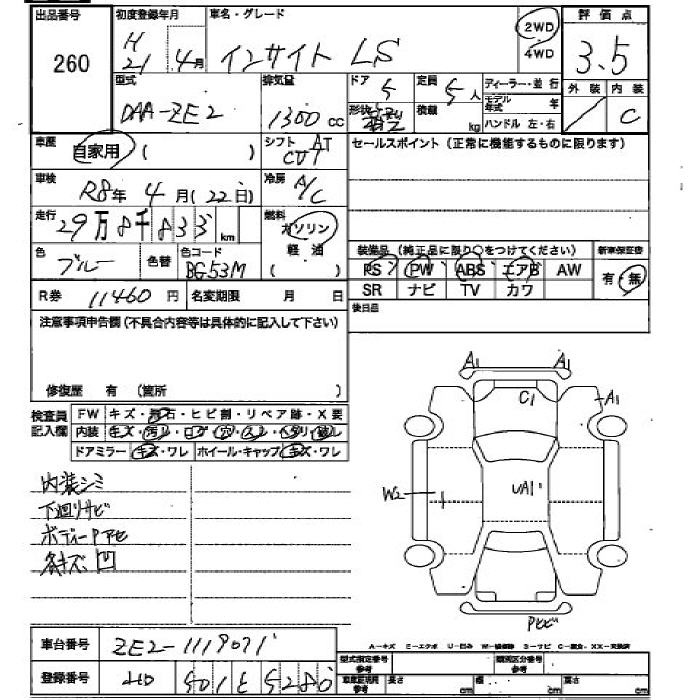 出品番号 260
初度登録年月 H21 4月
車名・グレード インサイト LS
2WD
4WD
評価点 3.5
外装 / 内装 C
型式 DAA-ZE2
排気量 1300 cc
ドア 5
形状
定員 5人
積載 kg
ディーラー・並行
モデル年式 年
ハンドル 左・右
車歴 自家用 ( )
シフト AT CVT
セールスポイント (正常に機能するものに限ります)
車検 R8年 4月 (22日)
冷房 A/C
走行 29万8千833 km
燃料 ガソリン
軽油
( )
色 ブルー 色替
色コード BG53M
装備品 (純正品に限り○をつけてください)
新車保証書
PS PW ABS エアB AW
有・無
SR ナビ TV カワ
R券 11460円 名変期限 月 日
後日品
注意事項申告欄 (不具合内容等は具体的に記入して下さい)
修復歴 有 (箇所 )
検査員記入欄
FW キズ・飛石・ヒビ割・リペア跡・X要
内装 キズ・汚れ・ログ・穴・スレ・ヘタリ・破レ
ドアミラー キズ・ワレ ホイール・キャップ キズ・ワレ
内装シミ
下廻りサビ
ボディーPアセ
各キズ凹
A1 A1
C1
A1
W2
UA1
Pヒビ
車台番号 ZE2-1119071
A-キズ E-エクボ U-凹み W-補修跡 S-サビ C-腐食 X・XX-交換済
登録番号 210 501 も 5280
型式指定番号 類別区分番号
車庫証明用参考 長さ cm 幅 cm 高さ cm